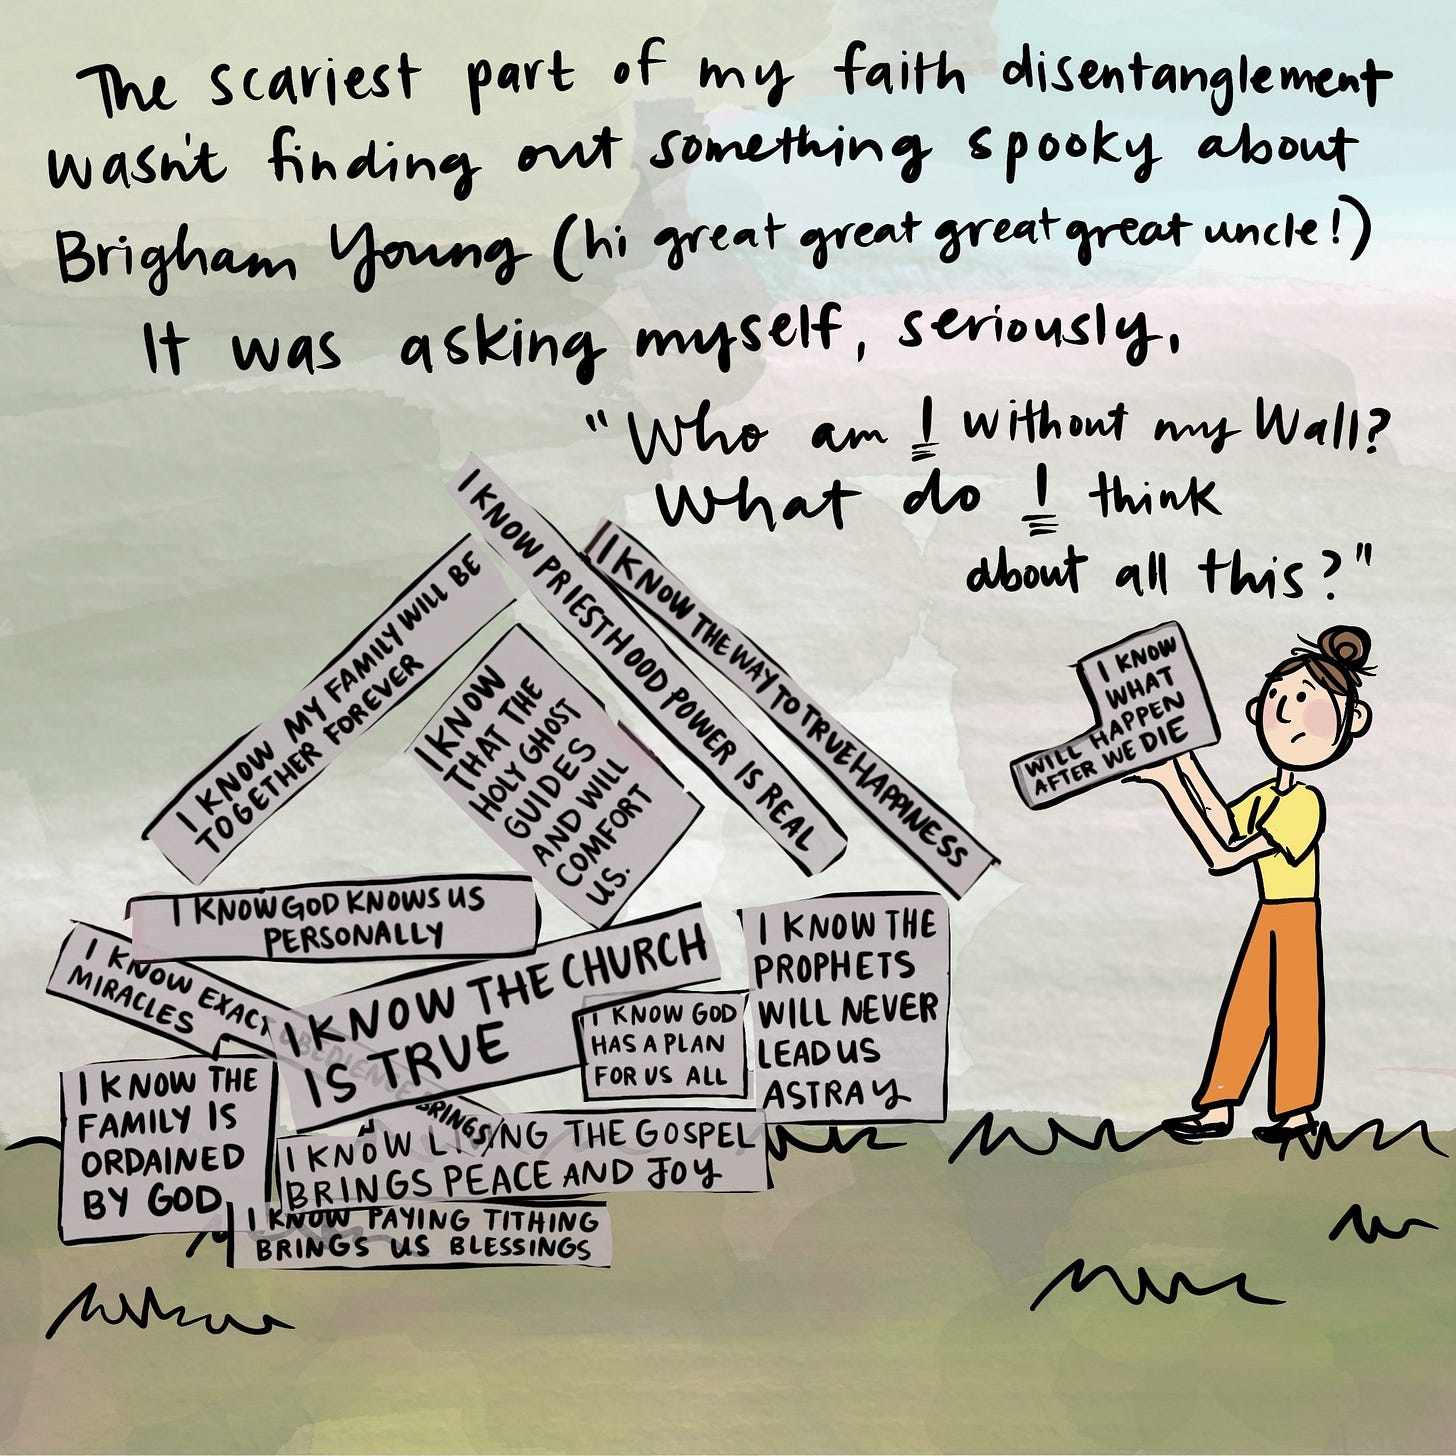 The scariest part of my faith disentanglement
wasn't finding out something spooky about
Brigham Young (hi great great great great uncle!)
It was asking myself, seriously,
"Who am I without my Wall?
What do I think
about all this?"
I KNOW MY FAMILY WILL BE
TOGETHER FOREVER
I KNOW
THAT THE
HOLY GHOST
GUIDES
AND WILL
COMFORT
US.
I KNOW PRIESTHOOD POWER IS REAL
I KNOW THE WAY TO TRUE HAPPINESS
I KNOW
WHAT
WILL HAPPEN
AFTER WE DIE
I KNOW GOD KNOWS US
PERSONALLY
I KNOW EXACT OBEDIENCE BRINGS
MIRACLES
I KNOW THE CHURCH
IS TRUE
I KNOW GOD
HAS A PLAN
FOR US ALL
I KNOW THE
PROPHETS
WILL NEVER
LEAD US
ASTRAY
I KNOW THE
FAMILY IS
ORDAINED
BY GOD
I KNOW LIVING THE GOSPEL
BRINGS PEACE AND JOY
I KNOW PAYING TITHING
BRINGS US BLESSINGS